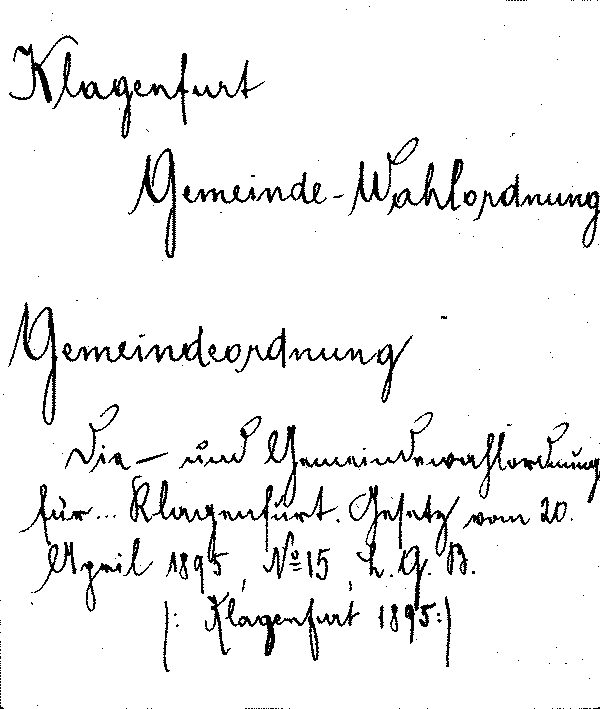 Klagenfurt
Gemeinde-Wahlordnung
Gemeindeordnung
Die — und Gemeindewahlordnung
für... Klagenfurt. Gesetz vom 20.
April 1895, No 15, L. G. B.
|: Klagenfurt 1895:|